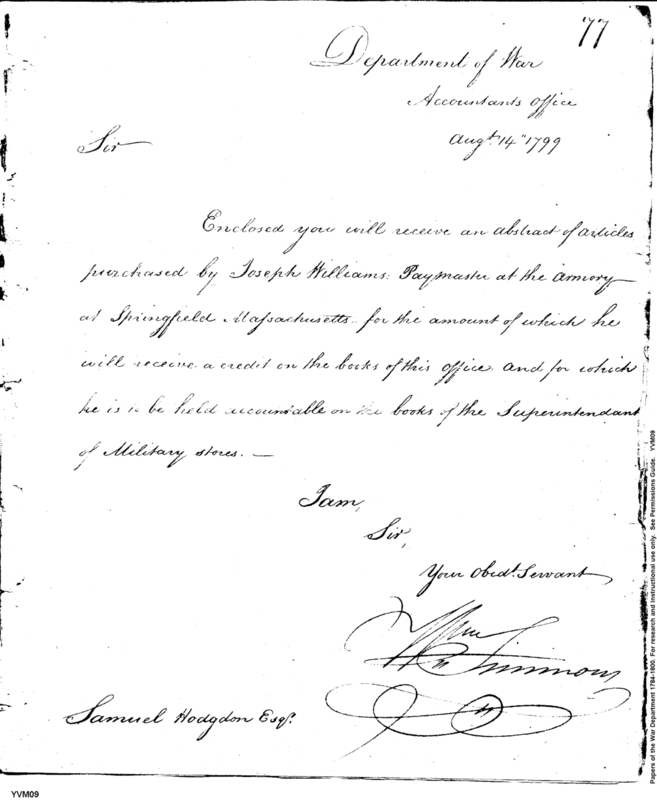 77
Department of War
Accountants office
Augt. 14" 1799
Sir
Enclosed you will receive an abstract of articles
purchased by Joseph Williams. Paymaster at the armory
at Springfield Massachusetts. for the amount of which he
will receive a credit on the books of this office. and for which
he is to be held accountable on the books of the Superintendant
of Military stores. —
I am,
Sir,
Your Obedt. Servant
Wm Simmons
Samuel Hodgdon Esqr.
YVM09
Papers of the War Department 1784-1800. For research and instructional use only. See Permissions Guide. YVM09